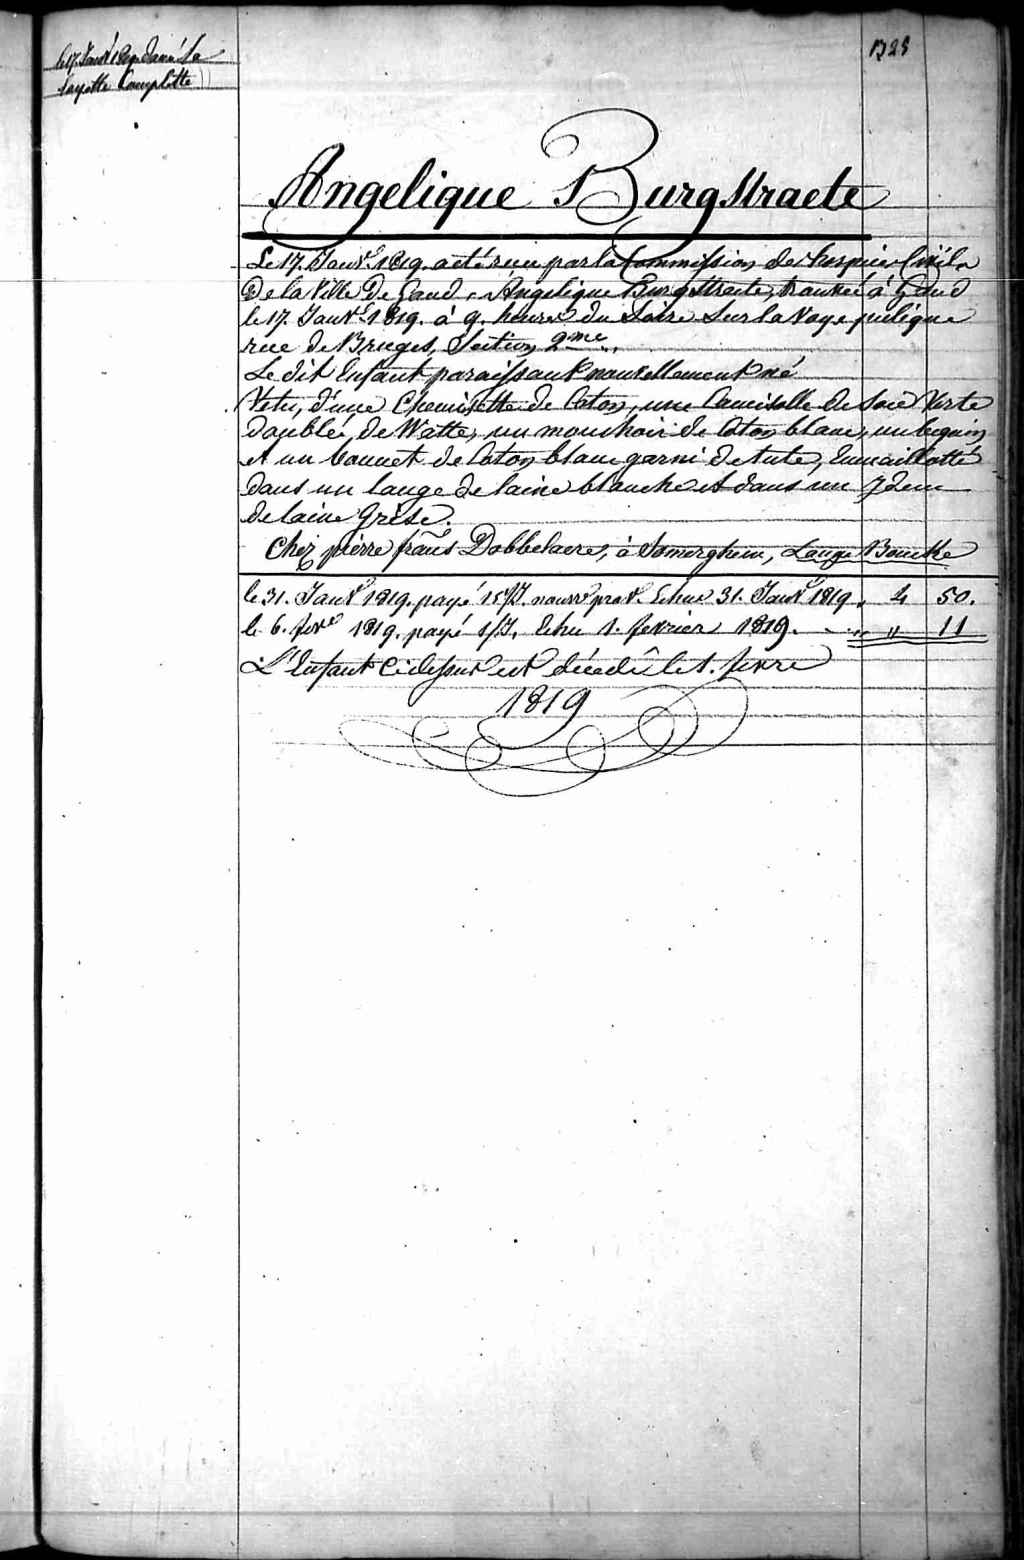 le 17. Janvr 1819 donné la
layette Complette
Angelique Burgstraete
Le 17. Janvr 1819. a été reçu par la Commission des hospices Civils
De la Ville De Gand, Angelique Burgstraete, trouvée à Gand
le 17. Janvr 1819. à 9. heures du Soire Sur la Voye publique
rue de Bruges, Section 2me.
Le dit Enfant paraissant nouvellement né
Vetu, d'une Chemisette de Coton, une Camisolle de Soie Verte
doublé, de Watte, un mouchoir de Coton blanc, un beguin
et un bonnet de Coton blanc garni de tule, Emmaillotté
dans un lange de laine blanche et dans un Idem
de laine Grise.
Chez pierre frans Dobbelaere, à Somerghem,
le 31. Janvr 1819. payé 15/J. Echue 31. Janvr 1819. 4 50.
le 6. fevre 1819. payé 1/J. Echu 1. fevrier 1819. " 11
L'Enfant Cidessus est décedé le 1. fevre
1819